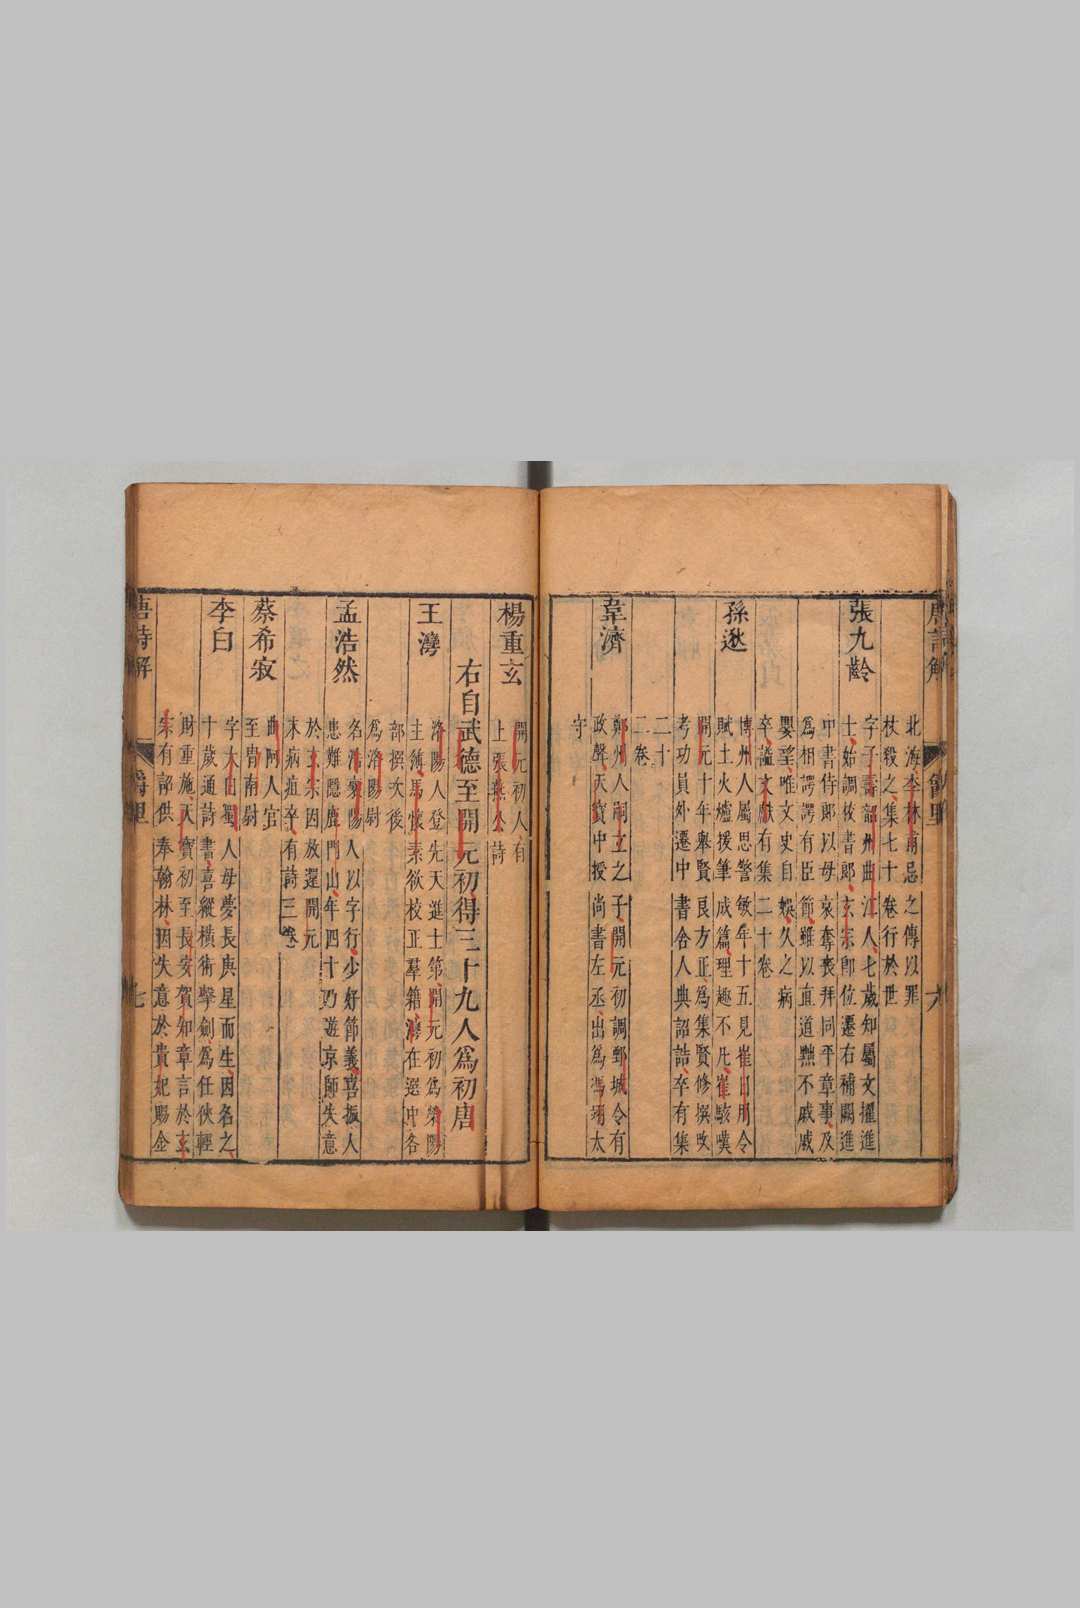 北海李林甫忌之傳以罪
杖殺之集七十卷行於世
張九齡
字子壽韶州曲江人七歲知屬文擢進
士始調校書郎玄宗即位遷右補闕進
中書侍郎以母哀奪喪拜同平章事及
為相諤諤有臣節雖以直道黜不戚戚
嬰望唯文史自娛久之病
卒諡文獻有集二十卷
孫逖
博州人屬思警敏年十五見崔日用令
賦土火爐援筆成篇理趣不凡崔駭嘆
開元十年舉賢良方正為集賢修撰改
考功員外遷中書舍人典詔誥卒有集
二十
二卷
韋濟
鄭州人嗣立之子開元初調鄄城令有
政聲天寶中授尚書左丞出為馮翊太
守
楊重玄
開元初人有
上張燕公詩
右自武德至開元初得三十九人為初唐
王灣
洛陽人登先天進士第開元初為滎陽
主簿馬懷素欲校正羣籍灣在選中各
部撰次後
為洛陽尉
孟浩然
名浩襄陽人以字行少好節義喜振人
患難隱鹿門山年四十乃遊京師失意
於玄宗因放還開元
末病疽卒有詩三卷
蔡希寂
曲阿人官
至渭南尉
李白
字太白蜀人母夢長庚星而生因名之
十歲通詩書喜縱橫術擊劍為任俠輕
財重施天寶初至長安賀知章言於玄
宗有詔供奉翰林因失意於貴妃賜金
唐詩解
爵里
七